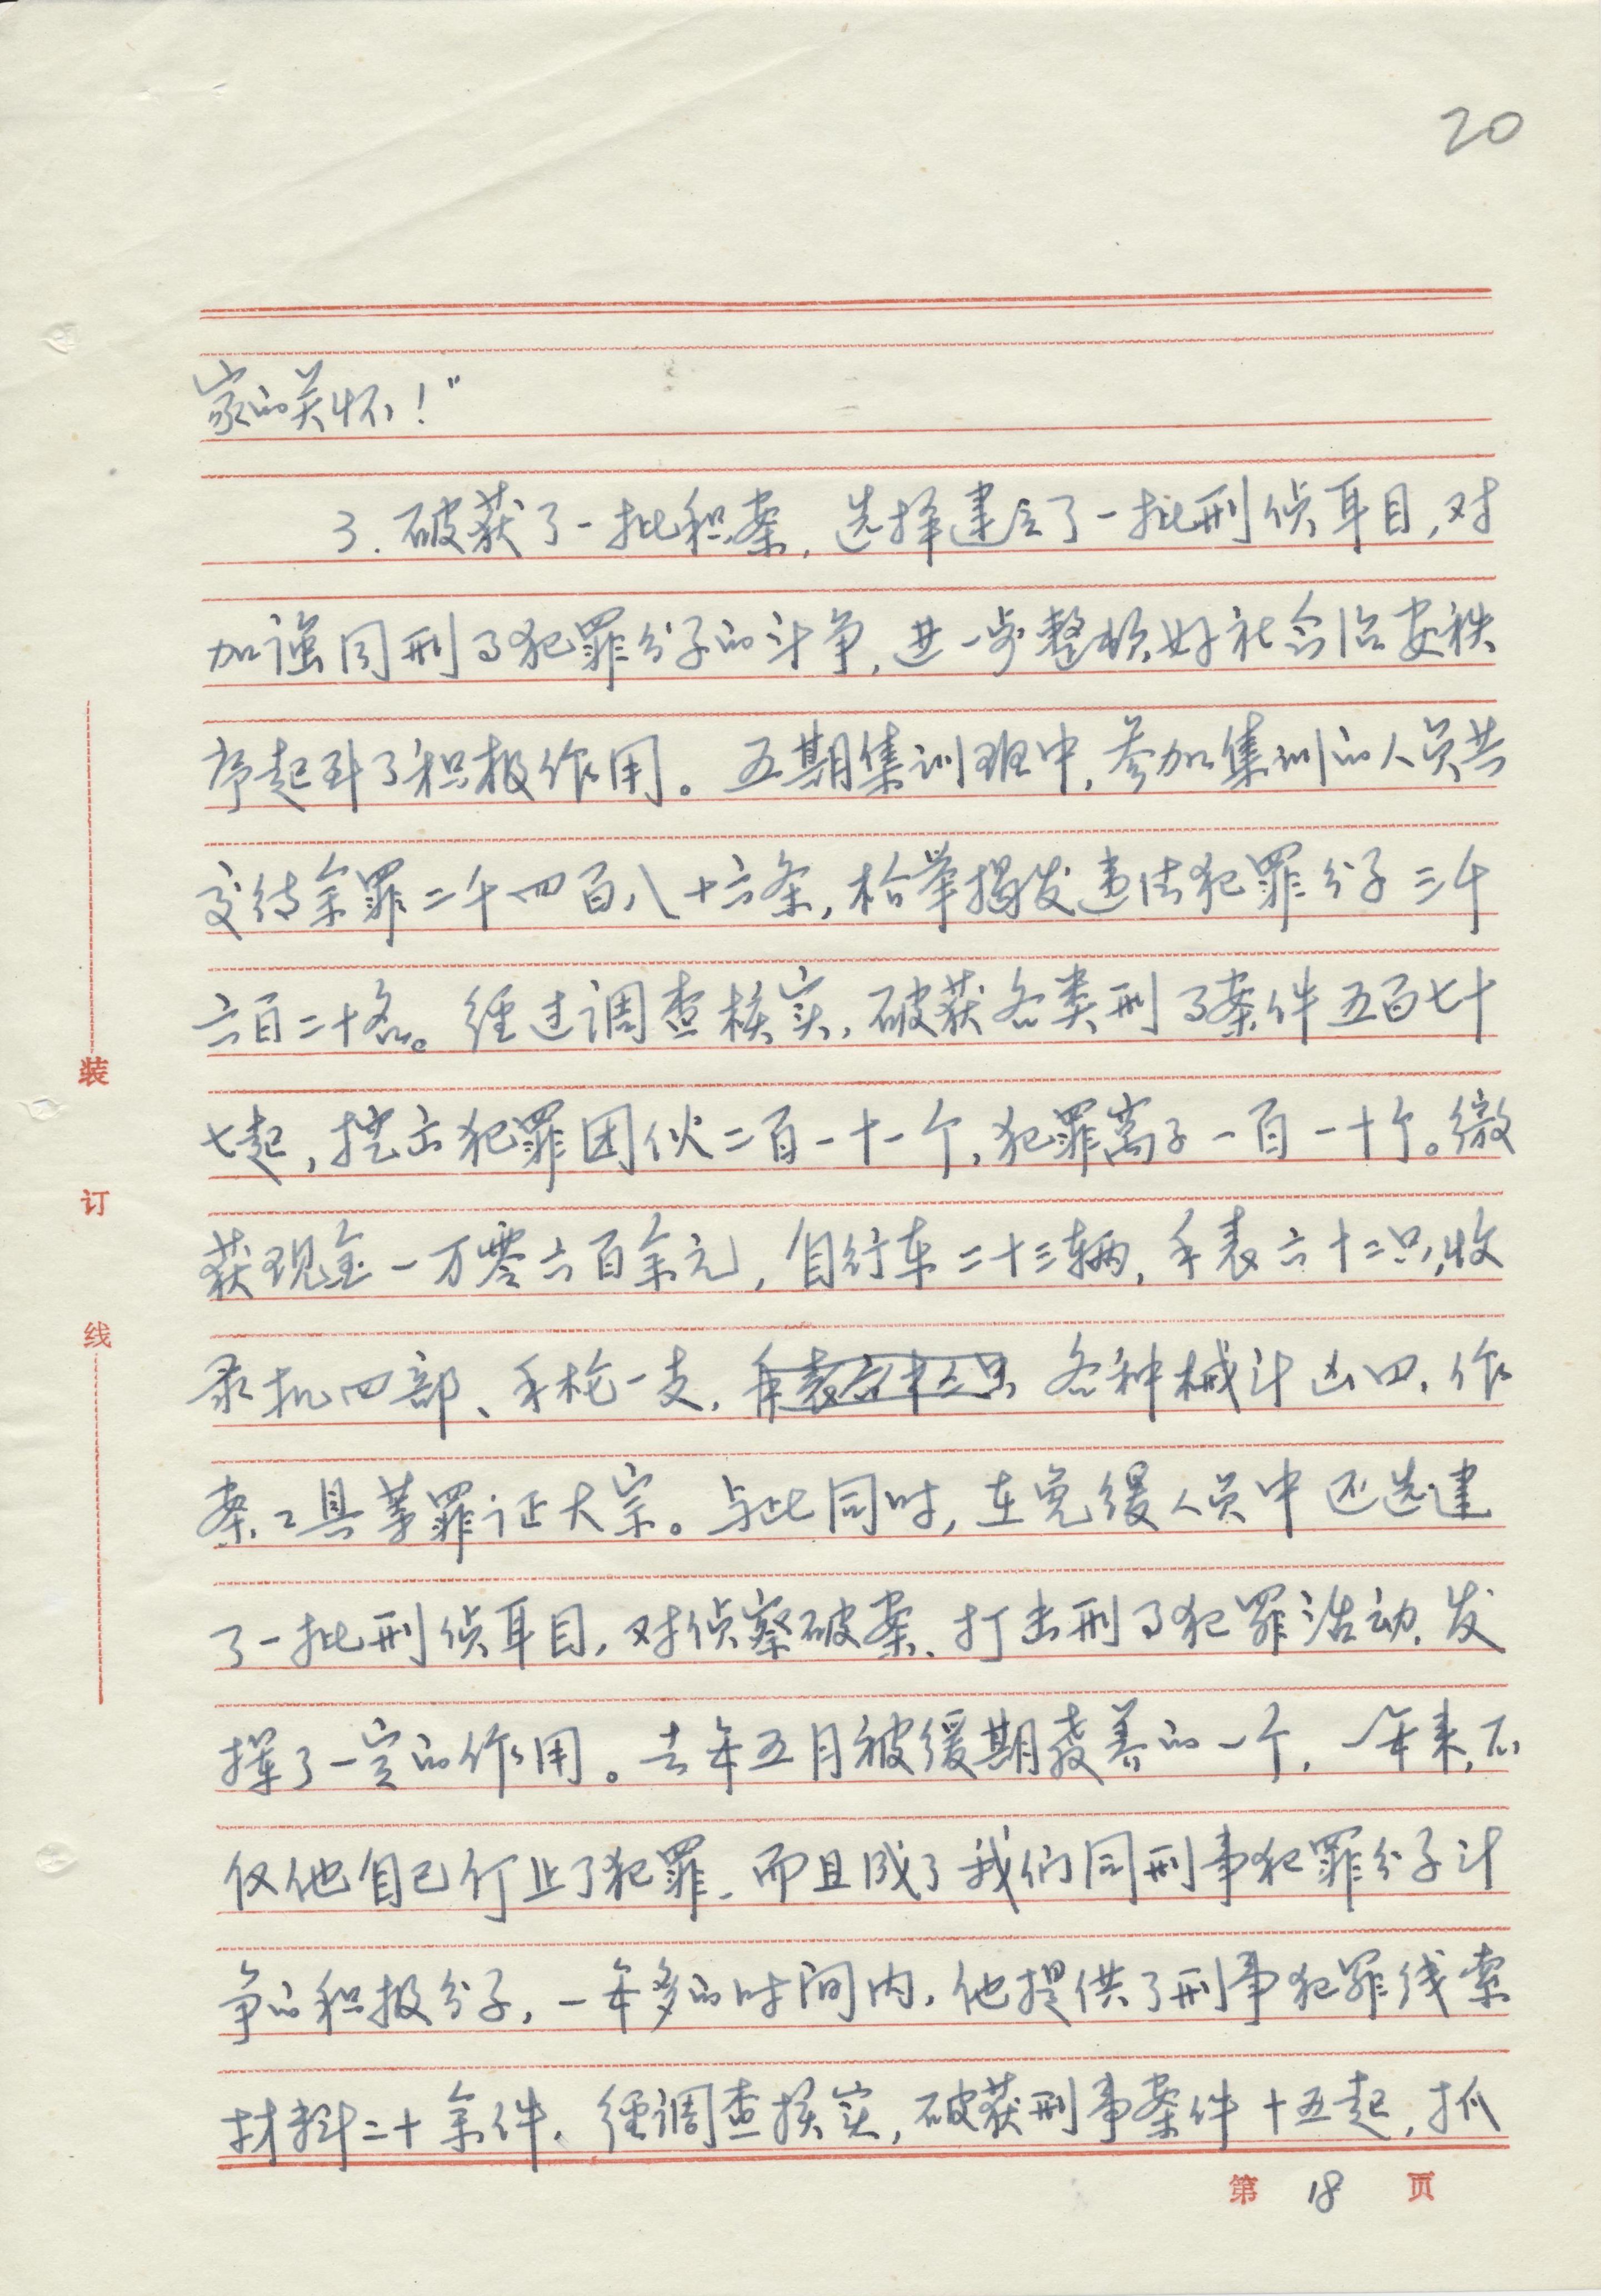 20
家的关怀！"
3. 破获了一批积案，选择建立了一批刑侦耳目，对
加强同刑事犯罪分子的斗争，进一步整顿好社会治安秩
序起到了积极作用。五期集训班中，参加集训的人员共
交待余罪二千四百八十六条，检举揭发违法犯罪分子三千
六百二十名。经过调查核实，破获各类刑事案件五百七十
七起，挖出犯罪团伙二百一十一个，犯罪窝子一百一十个。缴
获现金一万零六百余元，自行车二十三辆，手表六十二只，收
录机四部、手枪一支，各种械斗凶四、作
案工具等罪证大宗。与此同时，在宽缓人员中还选建
了一批刑侦耳目，对侦察破案、打击刑事犯罪活动，发
挥了一定的作用。去年五月被缓期教养的一个，一年来，不
仅他自己停止了犯罪，而且成了我们同刑事犯罪分子斗
争的积极分子，一年多的时间内，他提供了刑事犯罪线索
材料二十余件，经调查核实，破获刑事案件十五起，抓
装
订
线
第 18 页